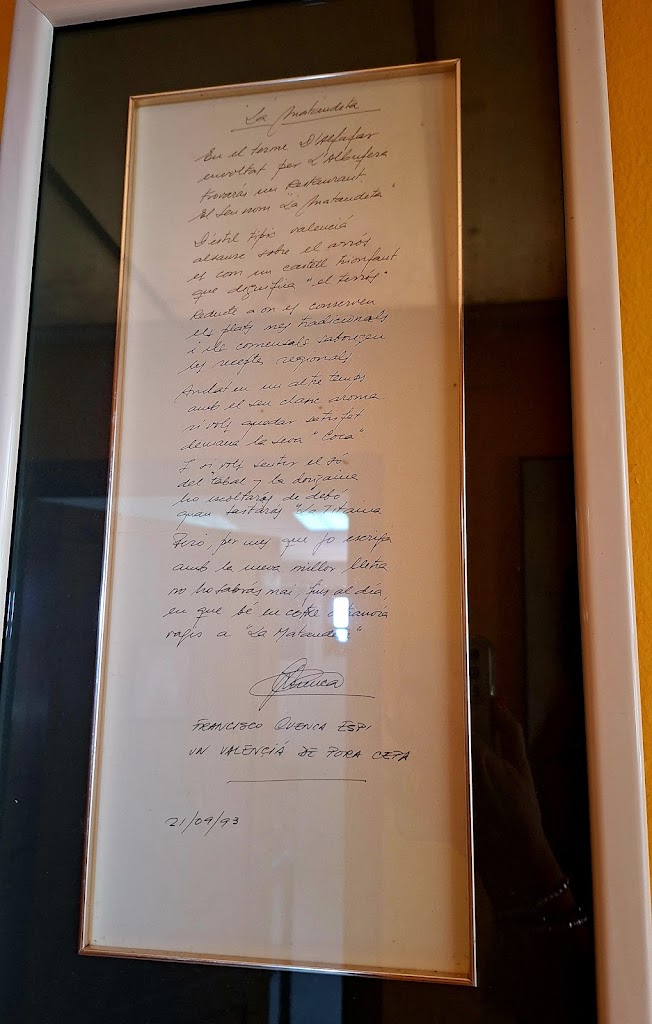 "La Matandeta
En el terme D'Alfafar
envoltat per L'Albufera
trovarás un Restaurant
El seu nom "La Matandeta"
D'estil tipic valenciá
alsanse sobre el arrós
es com un castell trionfant
que dignifica "el terrós"
Reducte a on es conserven
els plats mes tradicionals
i els comensals saborejen
les receptes regionals
en un altre temps
amb el seu clasic aroma
si vols quedar satisfet
demana la seva "Coca"
I si vols sentir el só
del tabal y la donzaina
ho escoltarás de debó
quan tastarás "la Titaina
Peró, per mes que jo escriga
amb la meva millor lletra
no ho sabrás mai, fins al día,
en que bé en cotxe o tranvía
vajis a "La Matandeta"
FRANCISCO QUENCA ESPI
UN VALENÇIÁ DE PORA CEPA
21/09/93